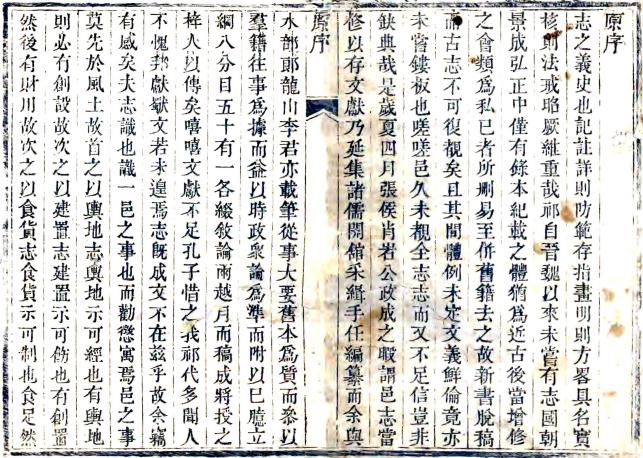 原序
志之義史也記註詳則防範存指畫明則方畧具名實
核則法戒昭厥維重哉祁自晉魏以來未嘗有志國朝
景成弘正中僅有錄本紀載之體猶爲近古後當增修
之會類爲私已者所刪易至併舊籍去之故新書脫稿
而古志不可復覩矣且其間體例未定文義鮮倫竟亦
未嘗鏤板也嗟嗟邑久未覩全志志而又不足信豈非
缺典哉是歲夏四月張侯肖岩公政成之暇謂邑志當
修以存文獻乃延集諸儒開舘采緝手任編纂而余與
原序
水部郎龍山李君亦載筆從事大要舊本爲質而叅以
羣籍往事爲據而益以時政衆論爲準而附以已臆立
綱八分目五十有一各綴敘論兩越月而稿成將授之
梓人以傳矣嘻嘻文獻不足孔子惜之我祁代多聞人
不愧邦獻獻文若未遑焉志旣成文不在玆乎故余竊
有感矣夫志識也識一邑之事也而勸懲寓焉邑之事
莫先於風土故首之以輿地志輿地示可經也有輿地
則必有創設故次之以建置志建置示可飭也有創置
然後有財用故次之以食貨志食貨示可制也食足然